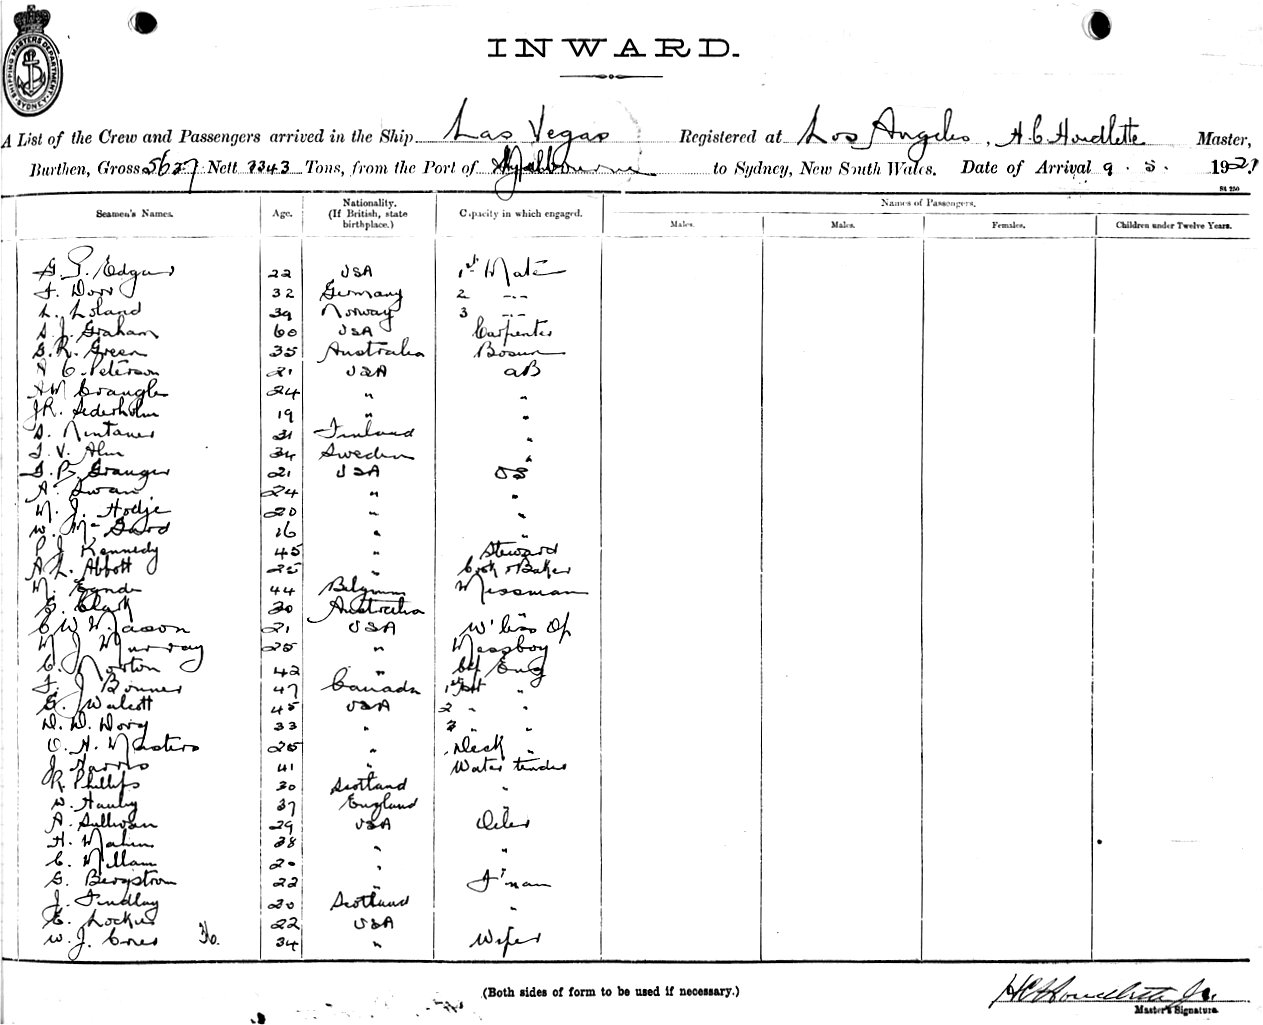 SHIPPING MASTERS DEPARTMENT SYDNEY
INWARD.
A List of the Crew and Passengers arrived in the Ship Las Vegas Registered at Los Angeles, H C Houdlette Master,
Burthen, Gross 5627 Nett Tons, from the Port of Melbourne to Sydney, New South Wales. Date of Arrival 9 . 5 . 19
Seamen's Names. Age. Nationality. (If British, state birthplace.) Capacity in which engaged. Names of Passengers.
Males. Males. Females. Children under Twelve Years.
Edgar 22 USA 1st Mate
F. Dorr 32 Germany 2 -"-
L. Loland 39 Norway 3 -"-
Graham 60 USA Carpenter
G. R. Green 35 Australia Bosun
A C. Peterson 21 USA AB
24 " "
J R. Sederholm 19 " "
31 Finland "
34 Sweden "
Granger 21 USA OS
A. Swan 24 " "
M. J. Hodje 20 " "
W. 16 " "
P J Kennedy 45 " Steward
A L. Abbott 25 " Cook & Baker
M. 44 Belgium Messman
E. Clark 30 Australia "
C W Mason 21 USA W'less Op
M J Murray 25 " Messboy
C. Norton 42 " Chf Eng
F. J Bonner 47 Canada 1st "
Walcott 45 USA 2 " "
33 " 3 " "
O. H. Masters 25 " Deck "
J. Harris 41 " Water tender
R. Phillips 30 Scotland "
W. 37 England "
A. Sullivan 29 USA Oiler
H. 38 " "
C. 20 "
G. Bergstrom 22 " F'man
J. Findlay 20 Scotland "
22 USA
W. J. 34 " Wiper
(Both sides of form to be used if necessary.)
H C Houdlette Jr.
Master's Signature.